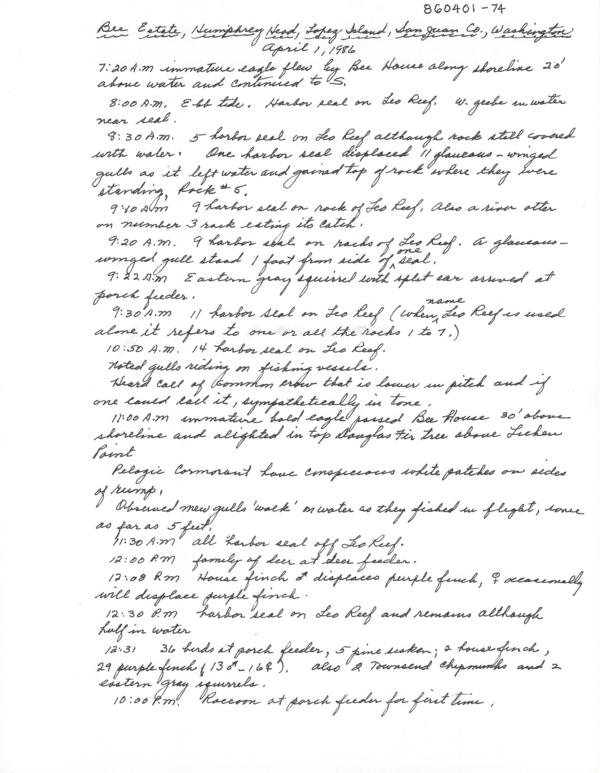 860401-74
Bee Estate, Humphrey Head, Lopez Island, San Juan Co., Washington
April 1, 1986
7:20 A.M immature eagle flew by Bee House along shoreline 20'
above water and continued to S.
8:00 A.M. Ebb tide. Harbor seal on Leo Reef. W. grebe in water
near seal.
8:30 A.M. 5 harbor seal on Leo Reef although rock still covered
with water. One harbor seal displaced 11 glaucous-winged
gulls as it left water and gained top of rock where they were
standing, Rock #5.
9:10 A.M 9 harbor seal on rock of Leo Reef, Also a river otter
on number 3 rock eating its catch.
9:20 A.M. 9 harbor seal on rocks of Leo Reef. A glaucous-
winged gull stand 1 foot from side of one seal.
9:22 A.M Eastern gray squirrel with split ear arrived at
porch feeder.
9:30 A.M 11 harbor seal on Leo Reef (When name Leo Reef is used
alone it refers to one or all the rocks 1 to 7.)
10:50 A.M. 14 harbor seal on Leo Reef.
Noted gulls riding on fishing vessels.
Heard call of common crow that is lower in pitch and if
one could call it, sympathetically in tone.
11:00 A.M immature bald eagle passed Bee House 30' above
shoreline and alighted in top Douglas Fir tree above Lichen
Point
Pelagic Cormorant have conspicious white patches on sides
of rump.
Observed mew gulls 'walk' on water as they fished in flight, some
as far as 5 feet.
11:30 A.M all harbor seal off Leo Reef.
12:00 P.M family of deer at deer feeder.
12:08 P.M House finch ♂ displaces purple finch, ♀ occasionally
will displace purple finch.
12:30 P.M harbor seal on Leo Reef and remains although
half in water
12:31 36 birds at porch feeder, 5 pine siskin; 2 house finch,
29 purple finch (13♂-16♀). Also 2 Townsend chipmunks and 2
eastern gray squirrels.
10:00 P.M. Raccoon at porch feeder for first time.